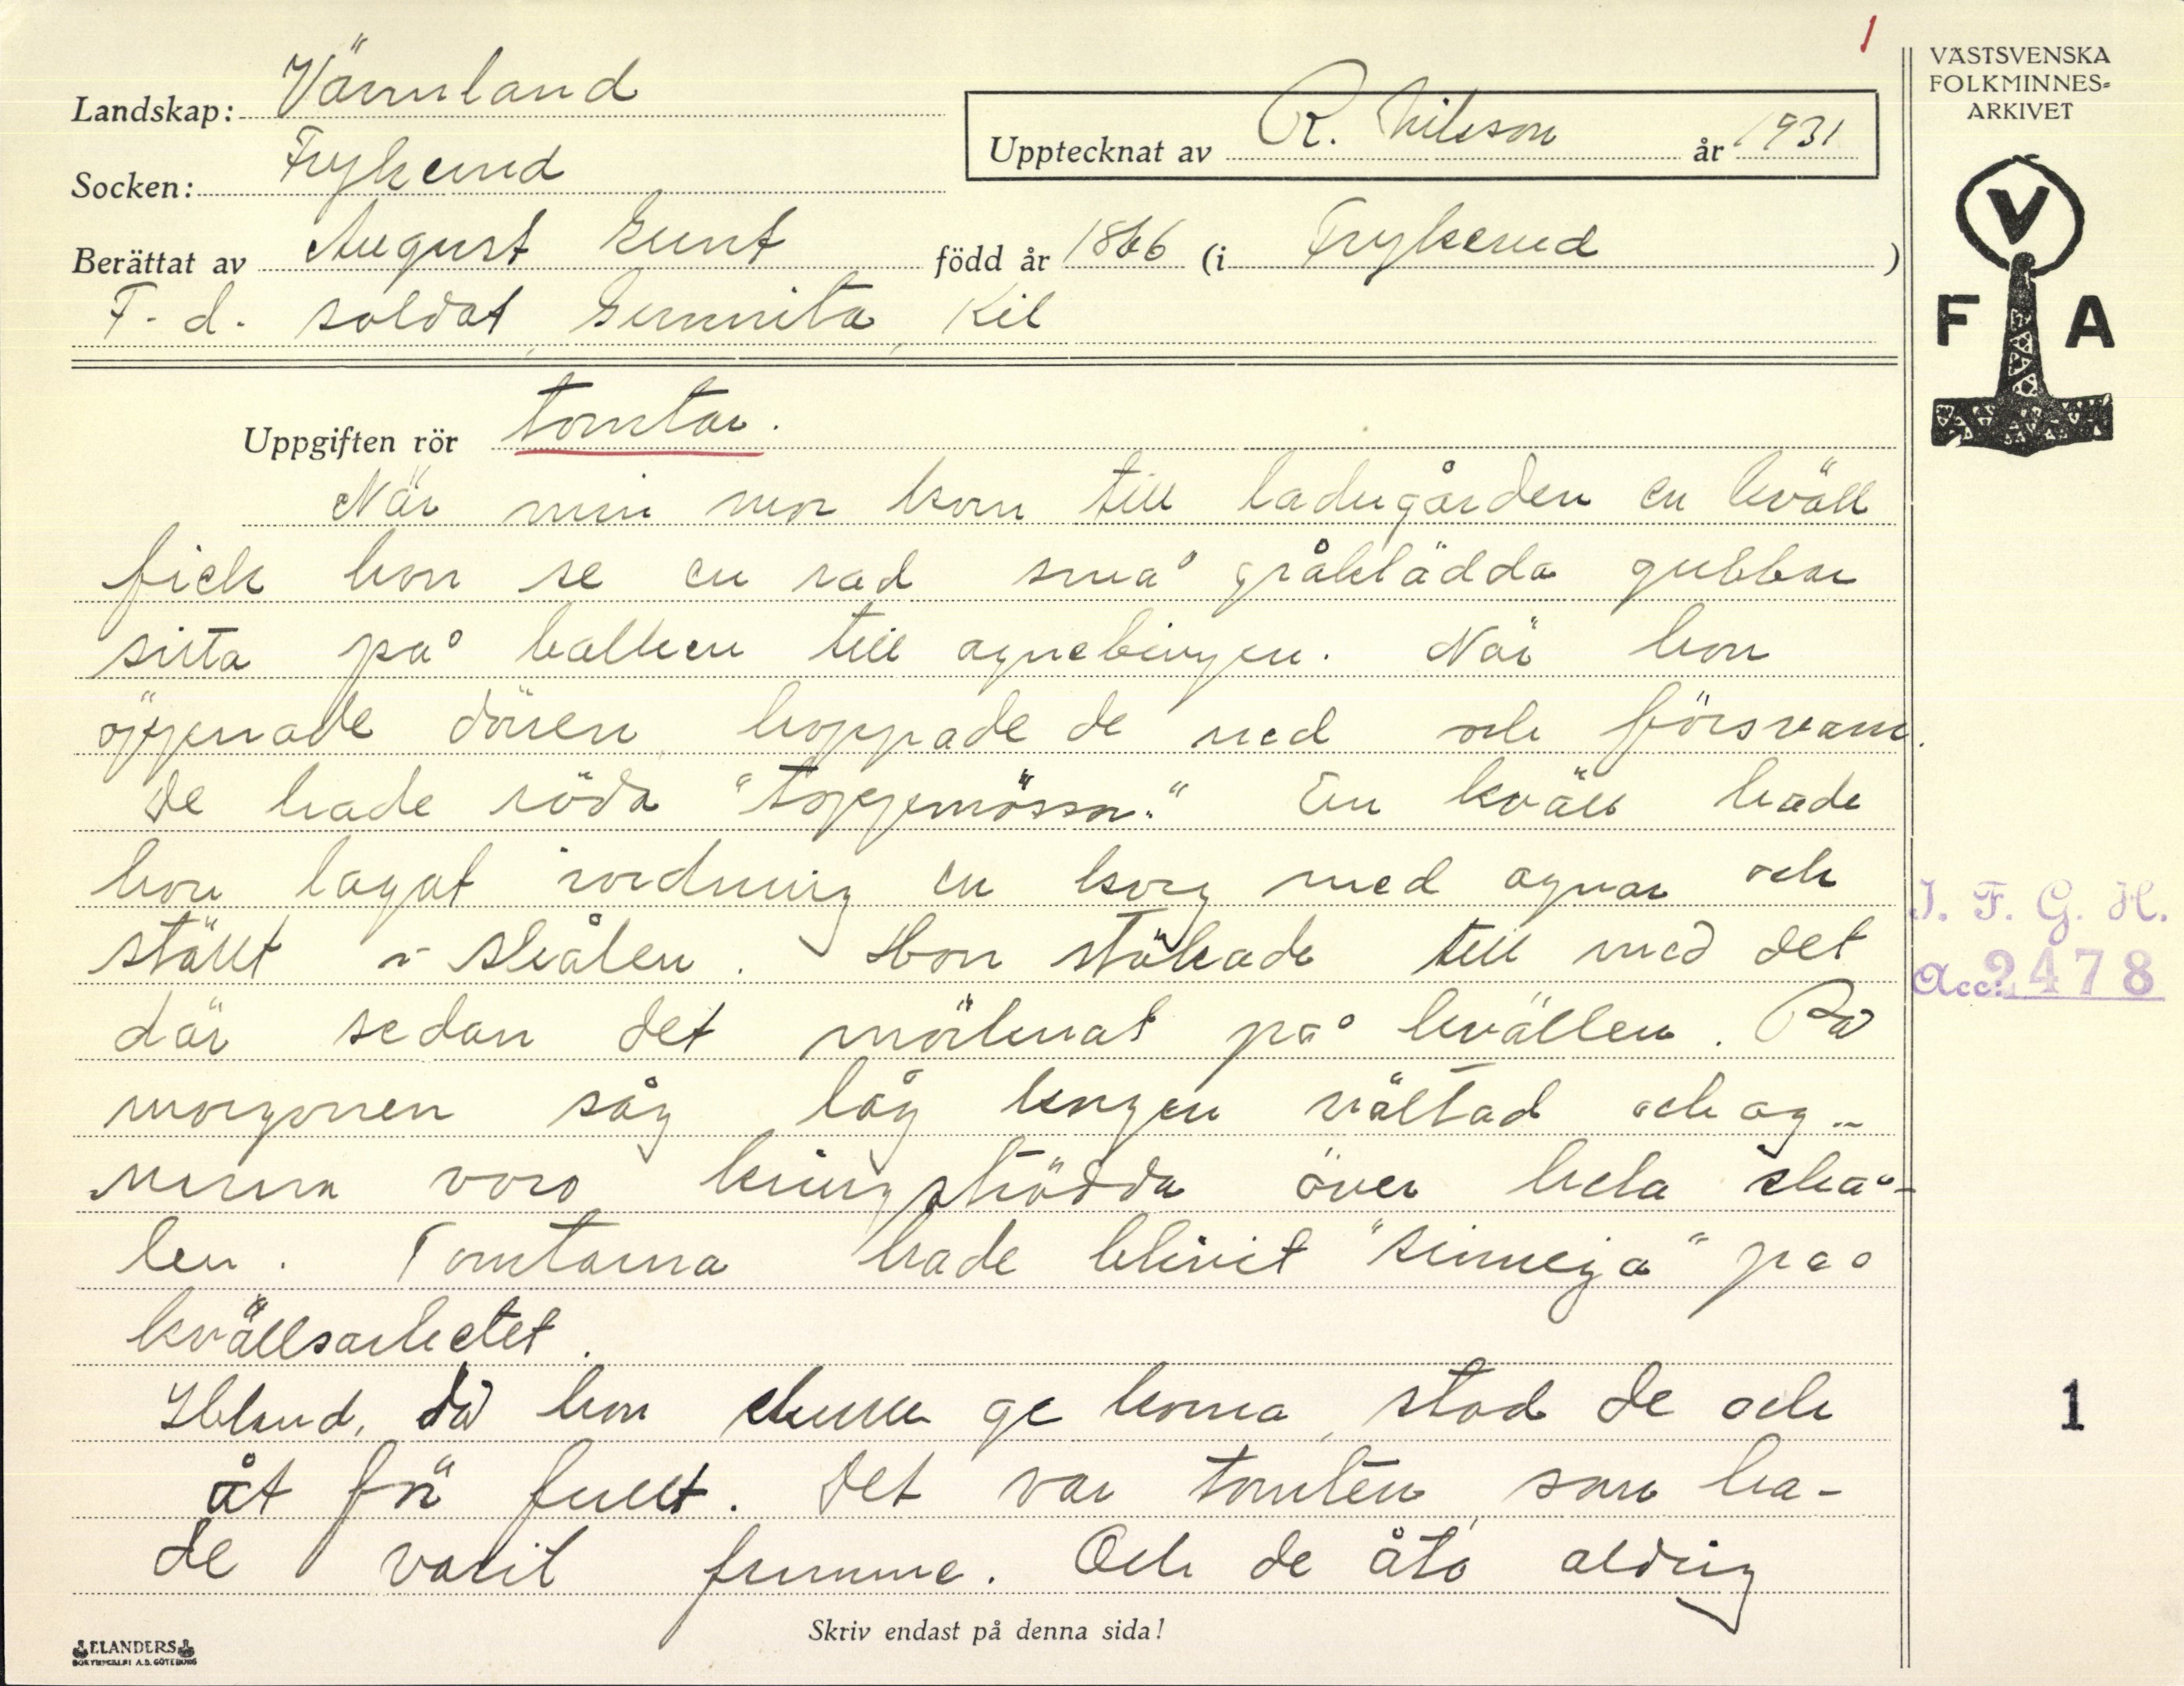 1
VÄSTSVENSKA
FOLKMINNES-
ARKIVET
Landskap: Värmland
Upptecknat av R. Nilsson år 1931
Socken: Frykerud
Berättat av August Gunt född år 1866 (i Frykerud )
F. d. soldat, Gunnita, Kil
V
F A
Uppgiften rör tomtar.
När min mor kom till ladugården en kväll
fick hon se en rad små gråklädda gubbar
sitta på balken till agnebingen. När hon
öppnade dörren, hoppade de ned och försvann.
De hade röda "toppmössor." En kväll hade
hon lagat iordning en korg med agnar och
ställt i skålen. Hon stökade till med det
där sedan det mörknat på kvällen. På
morgonen såg låg korgen vältad och ag-
narna voro kringströdda över hela skå-
len. Tomtarna hade blivit "sinneja" på
kvällsarbetet.
Ibland, då hon skulle ge korna, stod de och
åt för fullt. Det var tomten, som ha-
de varit framme. Och de åto aldrig
I. F. G. H.
Acc. 2478
1
Skriv endast på denna sida!
ELANDERS
BOKTRYCKERI A.B. GÖTEBORG